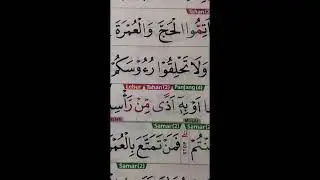 Tahan(2
اَتِمُّوا الْحَجَّ وَالْعُمْرَةَ
وَلَا تَحْلِقُوْا رُءُوْسَكُمْ
Lebur Tahan(2) Panjang(4)
اَوْ بِهٖٓ اَذًى مِّنْ رَّأْسِ
Samar(2) Samar(2)
فَمَنْ تَمَتَّعَ بِالْعُمْ
Samar(2)